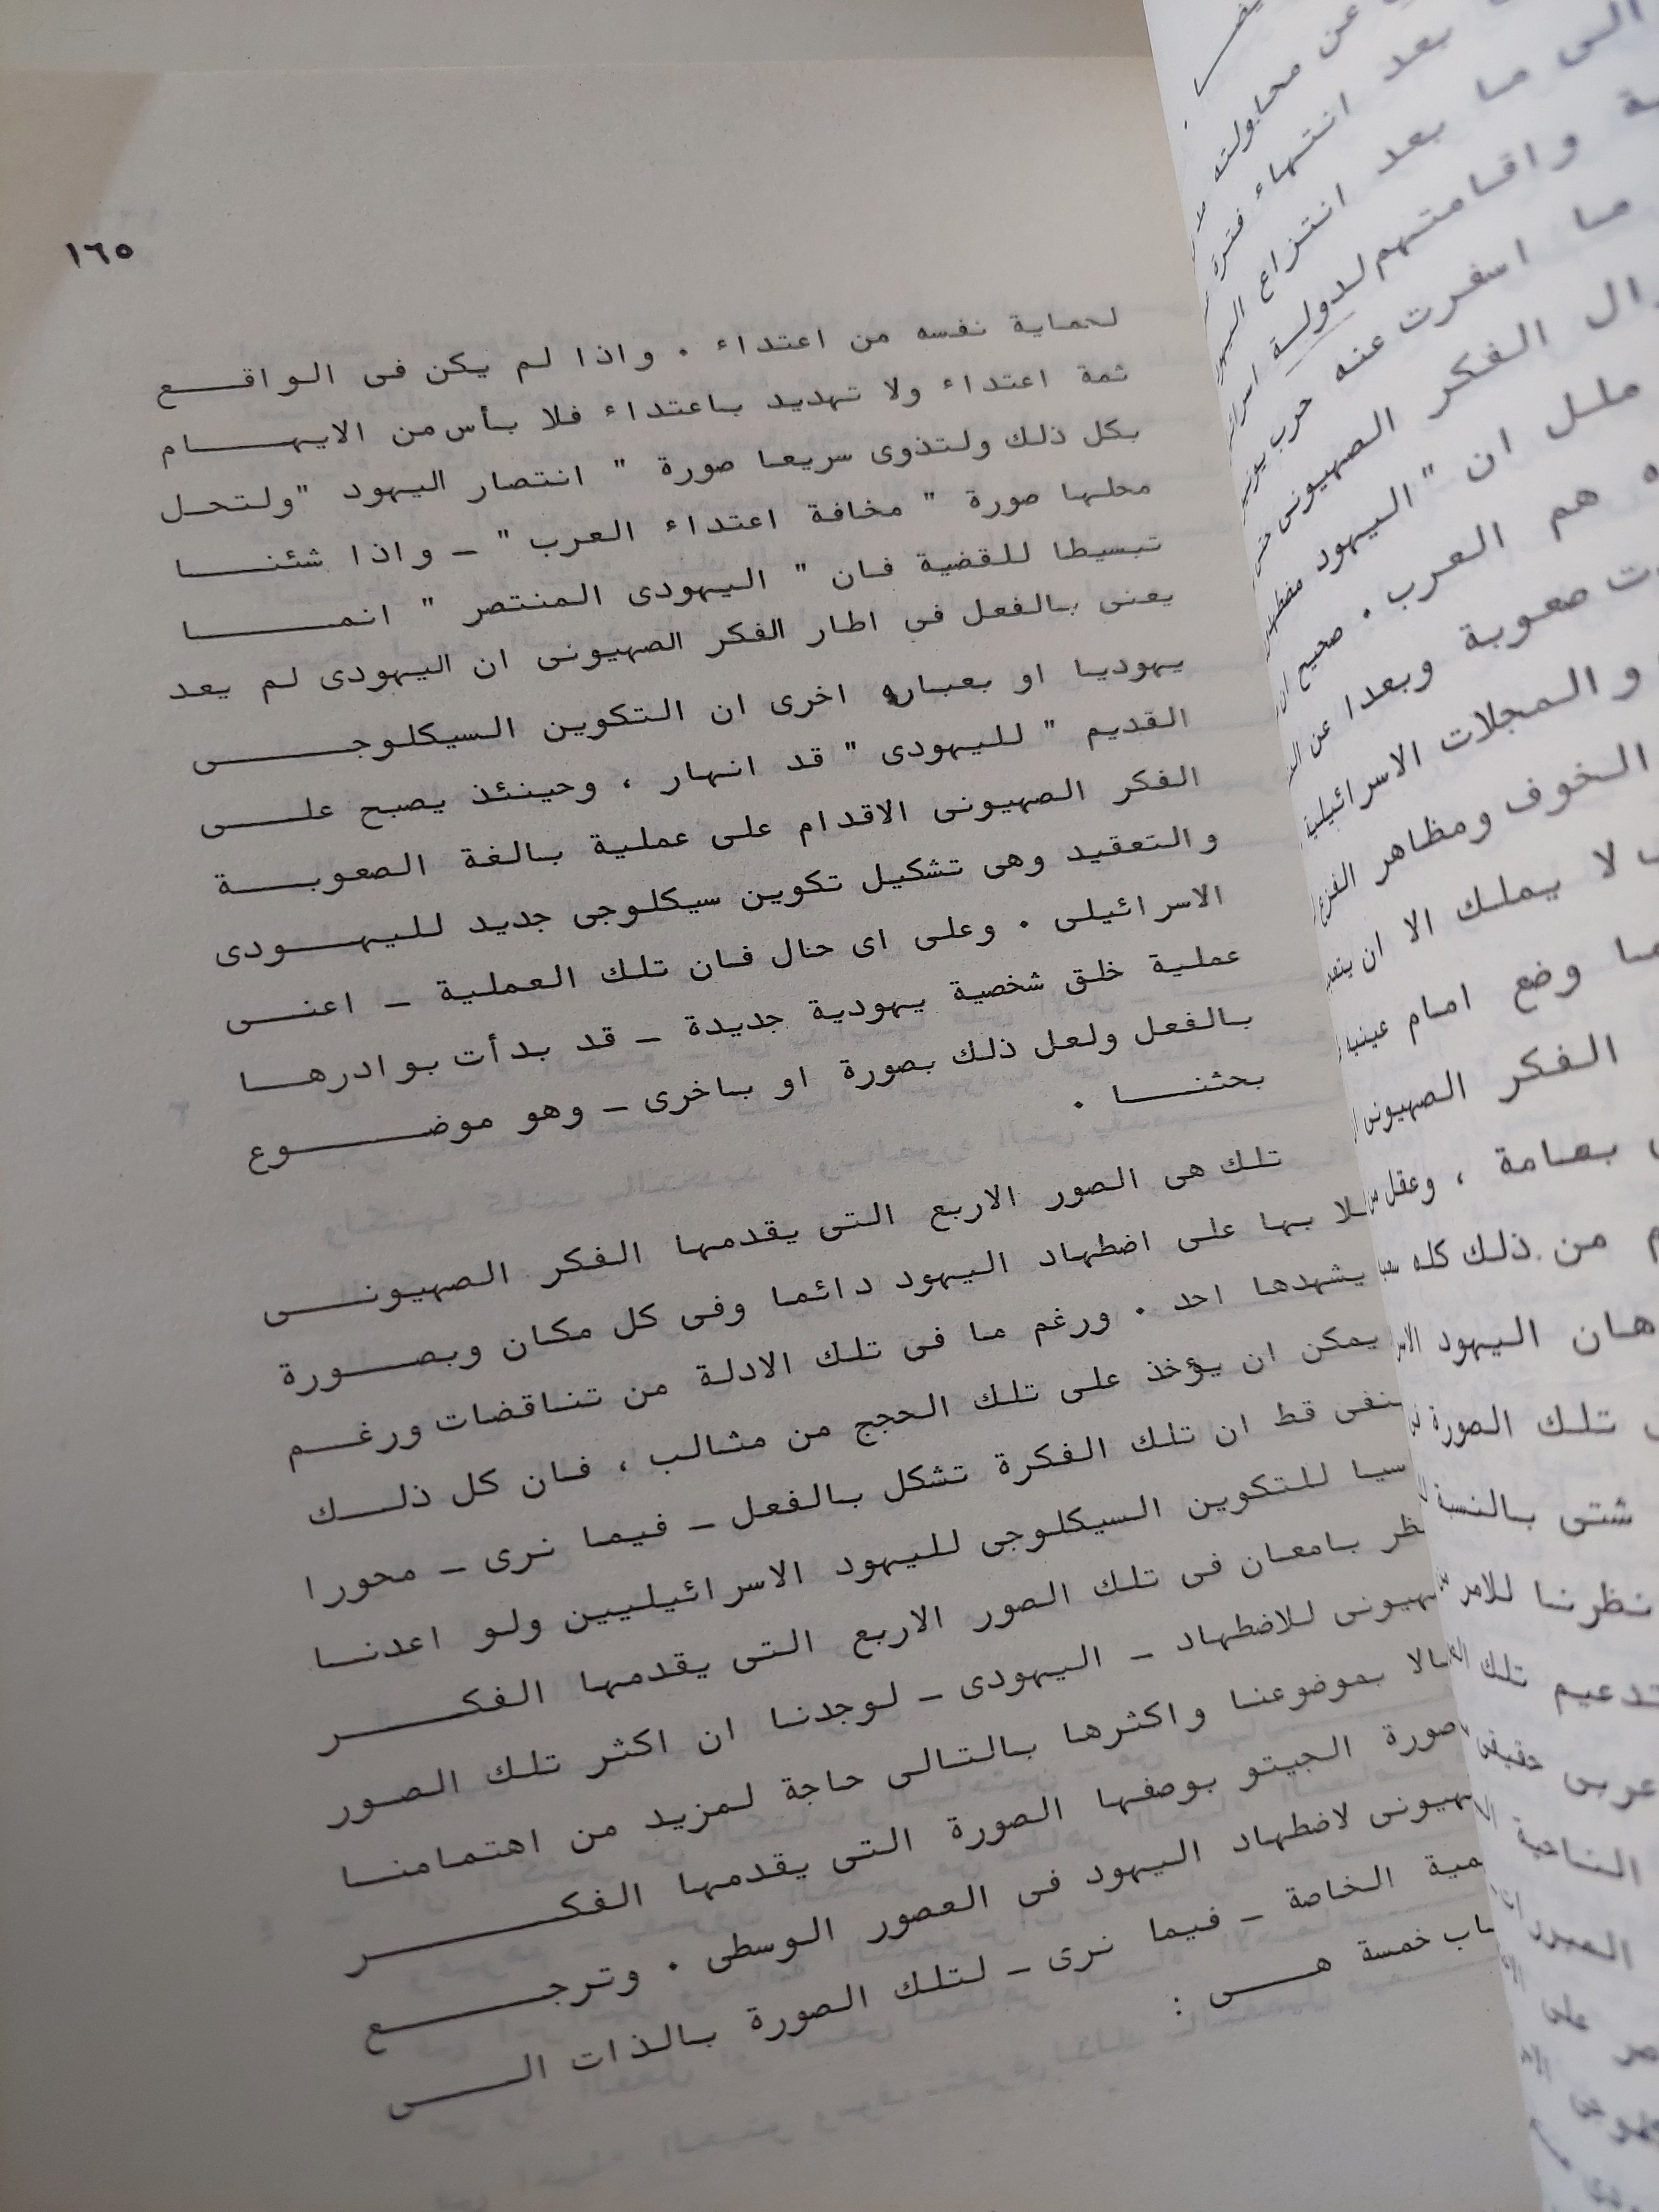 ١٦٥
لحماية نفسه من اعتداء . واذا لم يكن فى الواقع
ثمة اعتداء ولا تهديد باعتداء فلا بأس من الايهام
بكل ذلك ولتذوى سريعا صورة " انتصار اليهود " ولتحل
محلها صورة " مخافة اعتداء العرب " ـ واذا شئنا
تبسيطا للقضية فان " اليهودى المنتصر " انما
يعنى بالفعل فى اطار الفكر الصهيونى ان اليهودى لم يعد
يهوديا او بعباره اخرى ان التكوين السيكلوجى
القديم " لليهودى " قد انهار ، وحينئذ يصبح على
الفكر الصهيونى الاقدام على عملية بالغة الصعوبة
والتعقيد وهى تشكيل تكوين سيكلوجى جديد لليهودى
الاسرائيلى . وعلى اى حال فان تلك العملية ـ اعنى
عملية خلق شخصية يهودية جديدة ـ قد بدأت بوادرها
بالفعل ولعل ذلك بصورة او باخرى ـ وهو موضوع
بحثنا .
تلك هى الصور الاربع التى يقدمها الفكر الصهيونى
بها على اضطهاد اليهود دائما وفى كل مكان وبصورة
يشهدها احد . ورغم ما فى تلك الادلة من تناقضات ورغم
يمكن ان يؤخذ على تلك الحجج من مثالب ، فان كل ذلك
قط ان تلك الفكرة تشكل بالفعل ـ فيما نرى ـ محورا
للتكوين السيكلوجى لليهود الاسرائيليين ولو اعدنا
بامعان فى تلك الصور الاربع التى يقدمها الفكر
للاضطهاد ـ اليهودى ـ لوجدنا ان اكثر تلك الصور
بموضوعنا واكثرها بالتالى حاجة لمزيد من اهتمامنا
صورة الجيتو بوصفها الصورة التى يقدمها الفكر
لاضطهاد اليهود فى العصور الوسطى . وترجع
الخاصة ـ فيما نرى ـ لتلك الصورة بالذات الى
خمسة هى :
عن محاولته
بعد انتهاء فترة
الى ما بعد انتزاع
واقامتهم لدولة
ما اسفرت عنه حرب
الفكر الصهيونى
ملل ان " اليهود
هم العرب . صحيح ان
صعوبة وبعدا عن
والمجلات الاسرائيلية
الخوف ومظاهر الفزع
لا يملك الا ان
وضع امام
الفكر الصهيونى
بعامة ، وعقل
من ذلك كله
اليهود
تلك الصورة
شتى بالنسبة
نظرنا للامر
تلك
عربى
الناحية
على